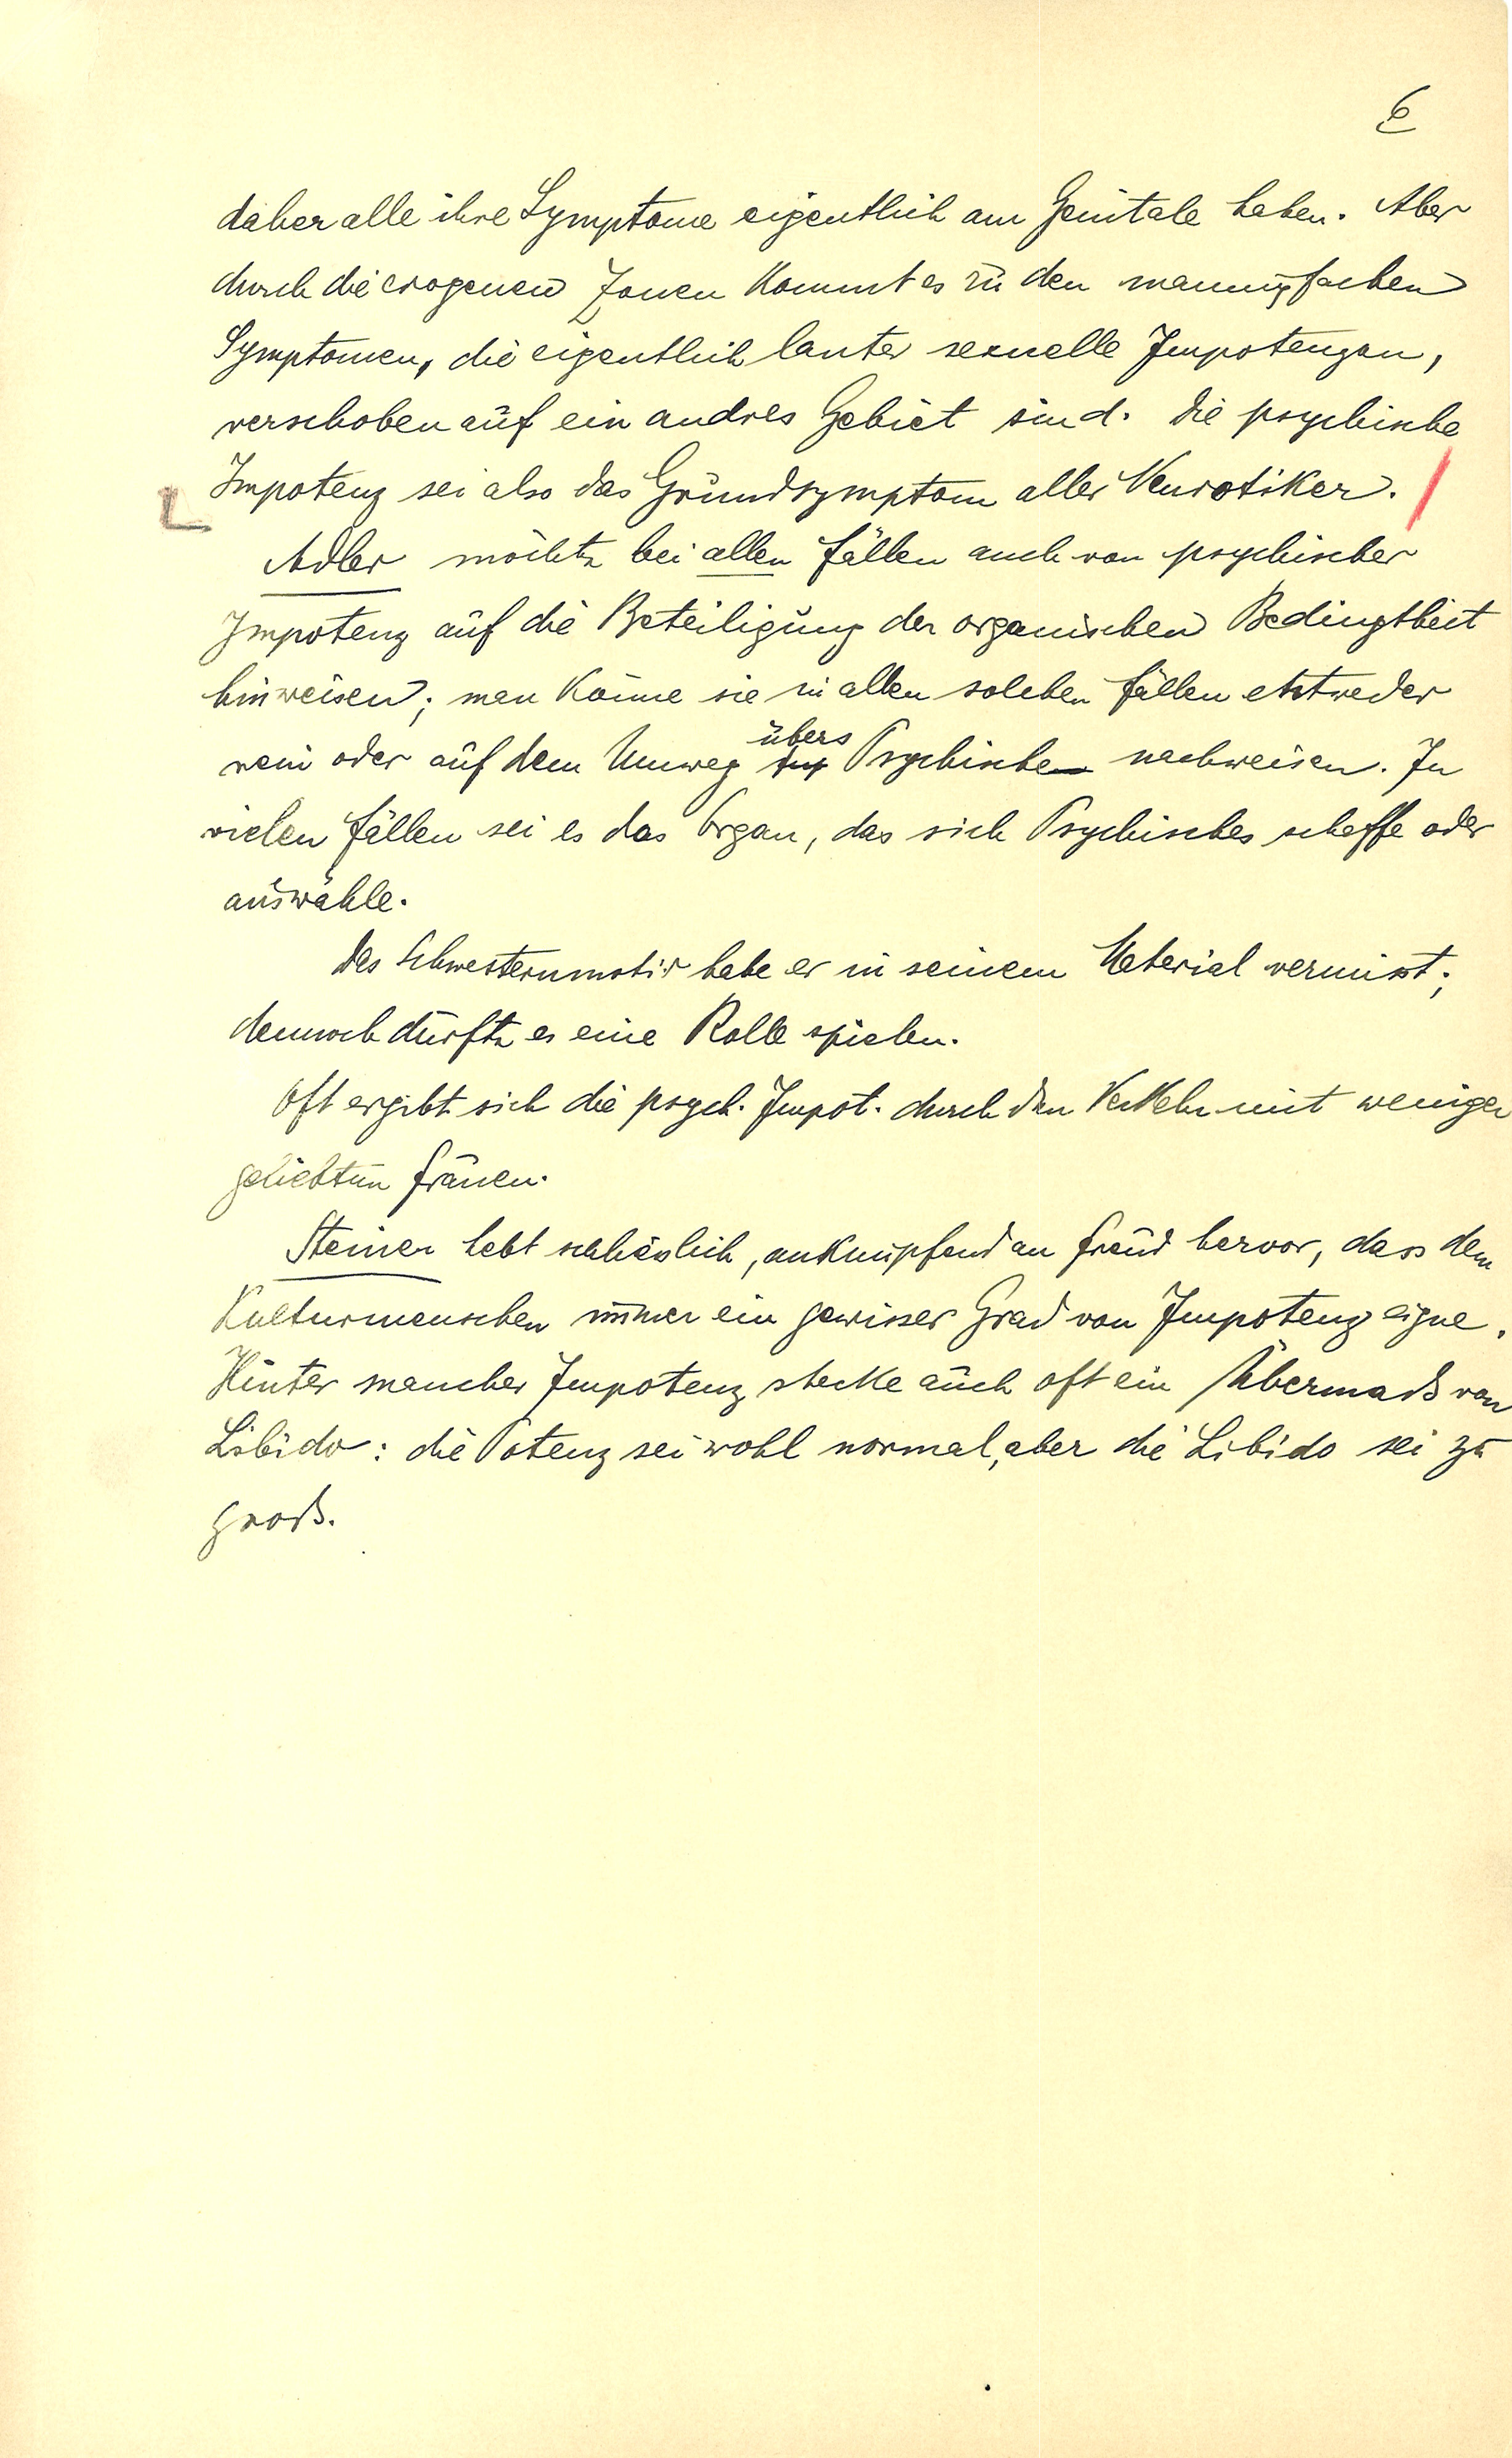 6
daher alle ihre Symptome eigentlich am Genitale haben. Aber
durch die erogenen Zonen kommt es zu den mannigfachen
Symptomen, die eigentlich lauter sexuelle Impotenzen,
verschoben auf ein andres Gebiet sind. Die psychische
Impotenz sei also das Grundsymptom aller Neurotiker.
Adler möchte bei allen Fällen auch von psychischer
Impotenz auf die Beteiligung der organischen Bedingtheit
hinweisen; man könne sie in allen solchen Fällen entweder
rein oder auf dem Umweg übers Psychische nachweisen. In
vielen Fällen sei es das Organ, das sich Psychisches schaffe oder
auswähle.
Das Schwesternmotiv habe er in seinem Material vermisst;
dennoch dürfte es eine Rolle spielen.
Oft ergibt sich die psych. Impot. durch den Verkehr mit weniger
geliebten Frauen.
Steiner hebt schliesslich, anknüpfend an Freud hervor, dass dem
Kulturmenschen immer ein gewisser Grad von Impotenz eigne.
Hinter mancher Impotenz stecke auch oft ein Übermaß von
Libido: die Potenz sei wohl normal, aber die Libido sei zu
groß.